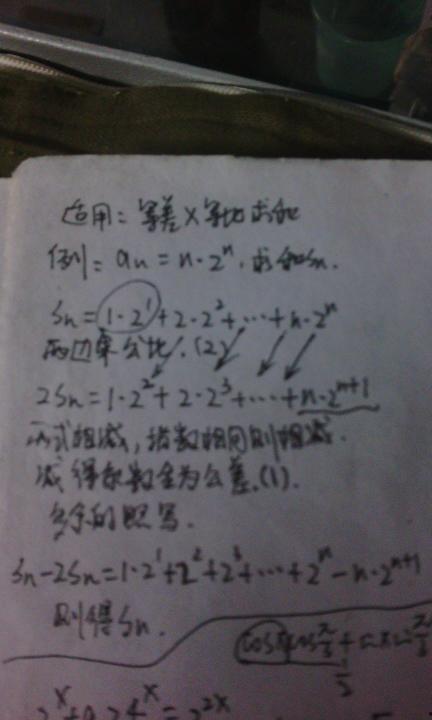 适用：等差×等比求和
例：an=n·2^n，求和Sn．
Sn=1·2^1+2·2^2+…+n·2^n
两边乘公比．(2)
2Sn=1·2^2+2·2^3+…+n·2^(n+1)
两式相减，指数相同则相减．
减得系数全为公差．(1)．
多余的照写．
Sn-2Sn=1·2^1+2^2+2^3+…+2^n-n·2^(n+1)
则得Sn．